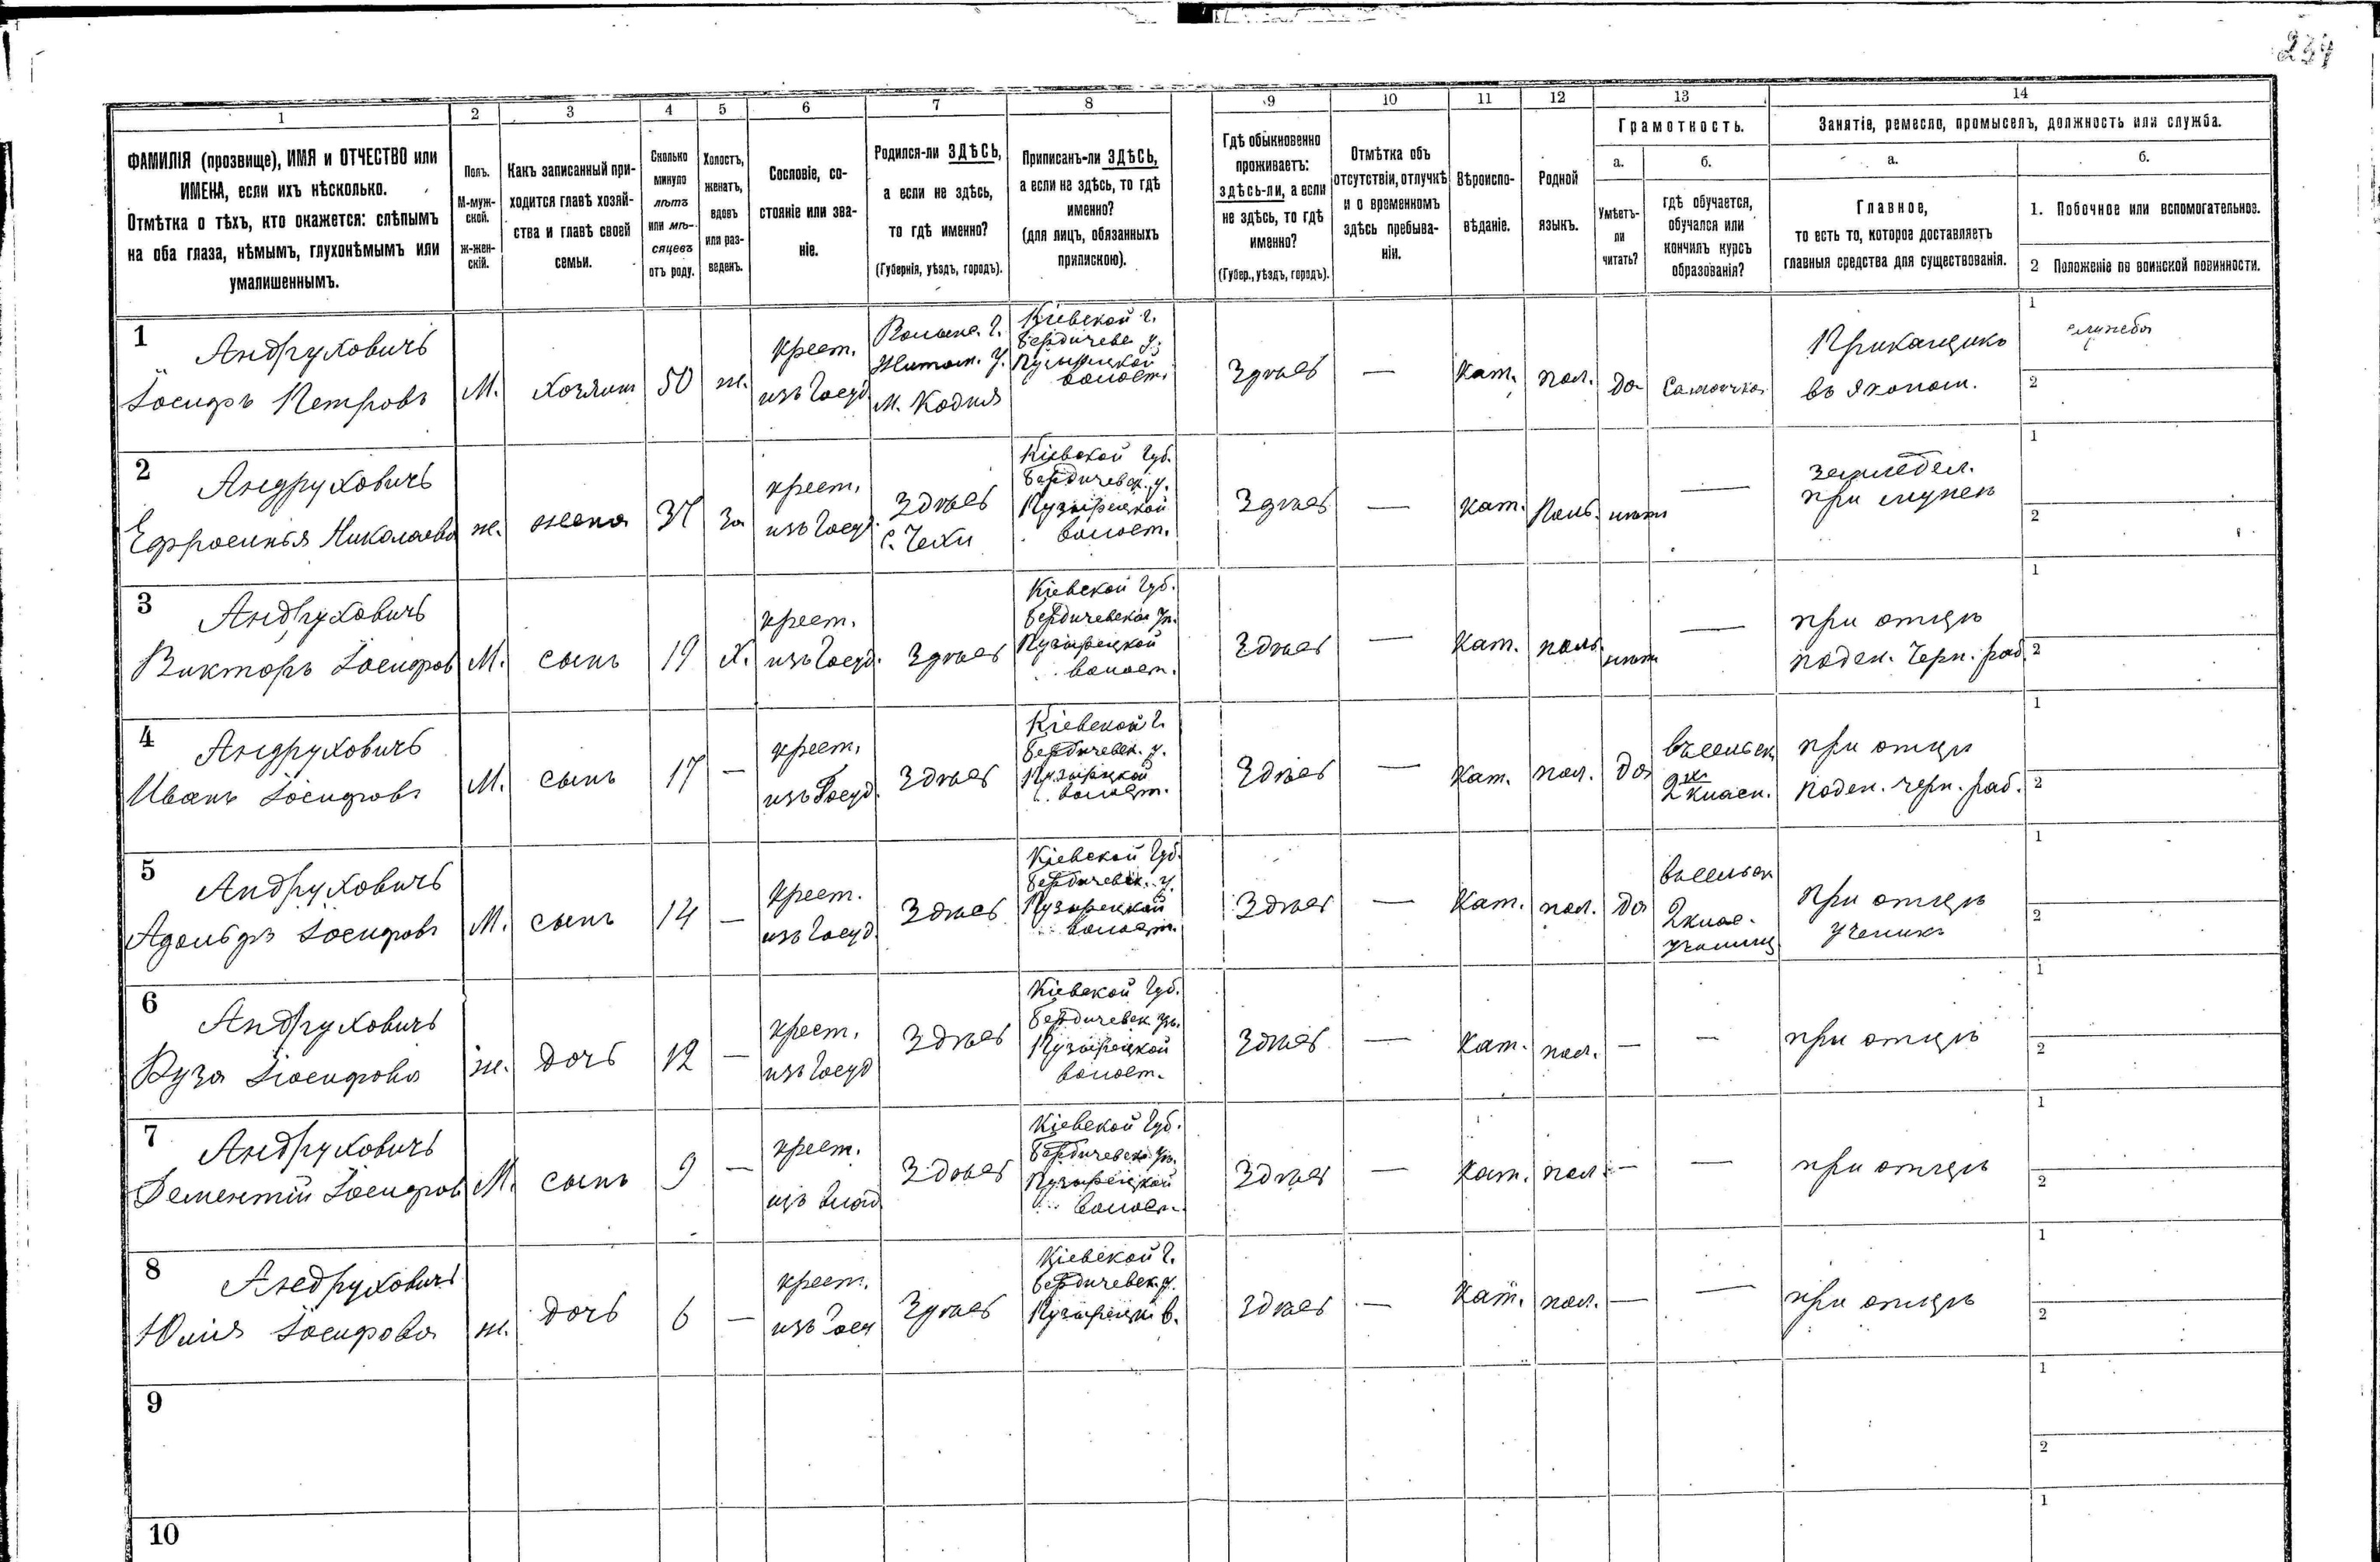 234
1 2 3 4 5 6 7 8 9 10 11 12 13 14
ФАМИЛІЯ (прозвище), ИМЯ и ОТЧЕСТВО или
ИМЕНА, если ихъ нѣсколько.
Отмѣтка о тѣхъ, кто окажется: слѣпымъ
на оба глаза, нѣмымъ, глухонѣмымъ или
умалишеннымъ.
Полъ.
М-муж-
ской.
ж-жен-
скій.
Какъ записанный при-
ходится главѣ хозяй-
ства и главѣ своей
семьи.
Сколько
минуло
лѣтъ
или мѣ-
сяцевъ
отъ роду.
Холостъ,
женатъ,
вдовъ
или раз-
веденъ.
Сословіе, со-
стояніе или зва-
ніе.
Родился-ли ЗДѢСЬ,
а если не здѣсь,
то гдѣ именно?
(Губернія, уѣздъ, городъ).
Приписанъ-ли ЗДѢСЬ,
а если не здѣсь, то гдѣ
именно?
(для лицъ, обязанныхъ
припискою).
Гдѣ обыкновенно
проживаетъ:
здѣсь-ли, а если
не здѣсь, то гдѣ
именно?
(Губер., уѣздъ, городъ).
Отмѣтка объ
отсутствіи, отлучкѣ
и о временномъ
здѣсь пребыва-
ніи.
Вѣроиспо-
вѣданіе.
Родной
языкъ.
Грамотность.
а.
Умѣетъ-
ли
читать?
б.
гдѣ обучается,
обучался или
кончилъ курсъ
образованія?
Занятіе, ремесло, промыселъ, должность или служба.
а.
Главное,
то есть то, которое доставляетъ
главныя средства для существованія.
б.
1. Побочное или вспомогательное.
2 Положеніе по воинской повинности.
1
Андруховичъ
Іосифъ Петровъ
М.
хозяин
50
ж.
крест.
изъ госуд.
Волынс. г.
Житом. у.
м. Кодня
Кіевской г.
Бердичевс. у.
Пузырецкой
волост.
Здѣсь
—
Кат.
пол.
да
Самоучка
Прикащикъ
въ эконом.
1
служба
2
2
Андруховичъ
Ефросинья Николаева
ж.
жена
37
за
крест.
изъ госуд.
Здѣсь
с. Чехи
Кіевской губ.
Бердичевск. у.
Пузырецкой
волост.
Здѣсь
—
кат.
Поль.
нѣтъ
—
земледел.
при мужѣ
1
2
3
Андруховичъ
Викторъ Іосифов
М.
сынъ
19
х.
крест.
изъ госуд.
Здѣсь
Кіевской губ.
Бердичевской уѣ.
Пузырецкой
волост.
Здѣсь
—
Кат.
поль.
нѣтъ
—
при отцѣ
поден. черн. раб.
1
2
4
Андруховичъ
Иванъ Іосифовъ
М.
сынъ
17
—
крест.
изъ Госуд.
Здѣсь
Кіевской г.
Бердичевск. у.
Пузырецкой
волост.
Здѣсь
—
кат.
пол.
да
въ сельск
2хъ класн.
при отцѣ
поден. черн. раб.
1
2
5
Андруховичъ
Адольфъ Іосифовъ
М.
сынъ
14
—
крест.
изъ госуд.
Здѣсь
Кіевской губ.
Бердичевск. у.
Пузырецкой
волост.
Здѣсь
—
Кат.
пол.
да
въ сельск
2 клас.
училищ
при отцѣ
ученикъ
1
2
6
Андруховичъ
Руза Іосифова
ж.
дочь
12
—
крест.
изъ госуд
Здѣсь
Кіевской губ.
Бердичевск уѣ.
Пузырецкой
волост.
Здѣсь
—
Кат.
пол.
—
—
при отцѣ
1
2
7
Андруховичъ
Дементій Іосифов
М.
сынъ
9
—
крест.
изъ
Здѣсь
Кіевской губ.
Бердичевско уѣ.
Пузырецкой
волост.
Здѣсь
—
Кат.
пол.
—
—
при отцѣ
1
2
8
Андруховичъ
Юлія Іосифова
ж.
дочь
6
—
крест.
изъ госу
Здѣсь
Кіевской г.
Бердичевск. у.
Пузырецк в.
Здѣсь
—
Кат.
пол.
—
—
при отцѣ
1
2
9
1
2
10
1